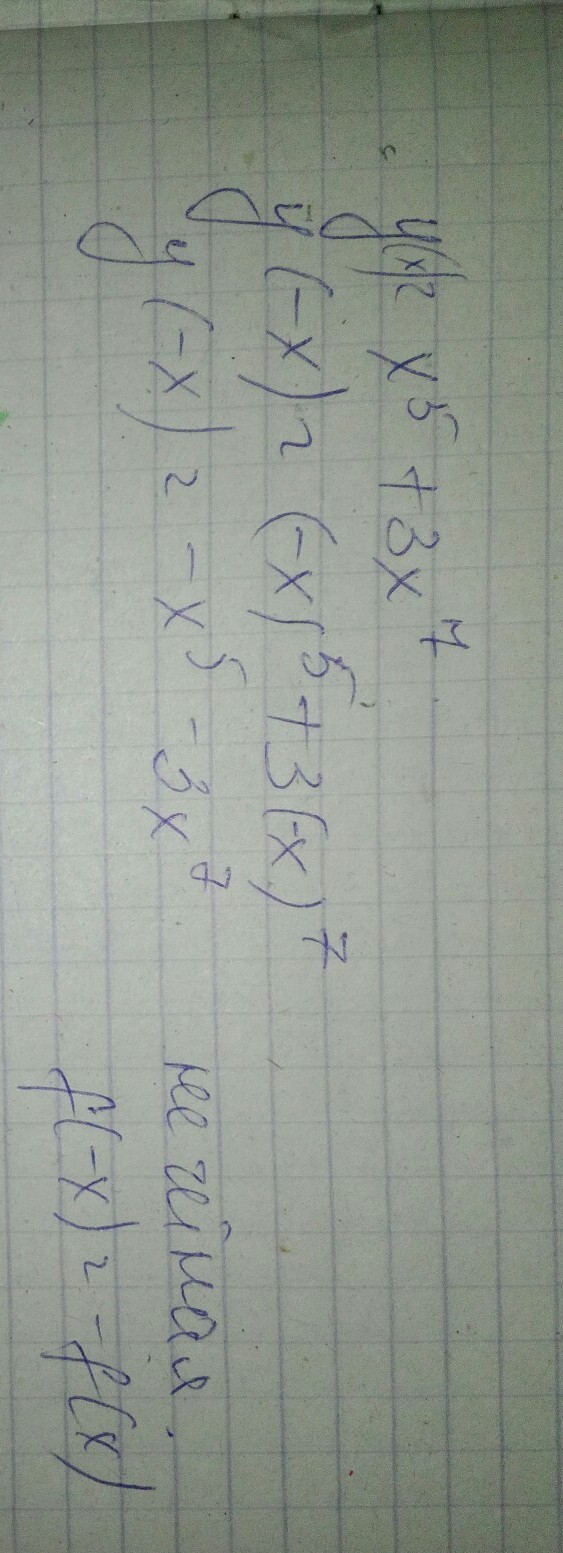 y(x) = x⁵ + 3x⁷
y(-x) = (-x)⁵ + 3(-x)⁷
y(-x) = -x⁵ - 3x⁷ нечётная.
f(-x) = -f(x)